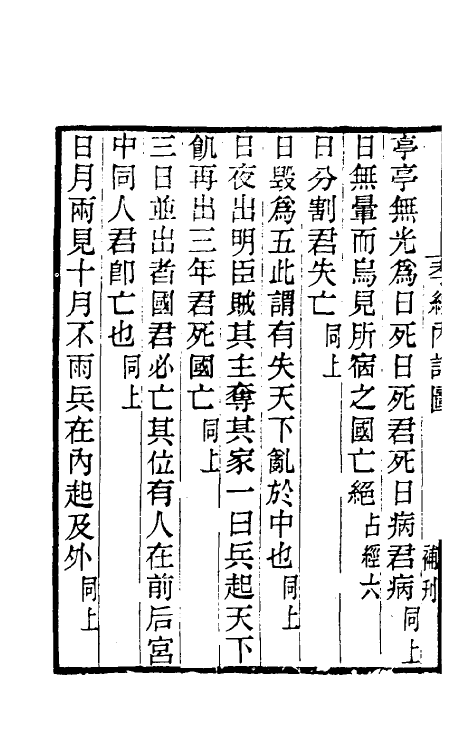 孝經內記圖
補刋
亭亭無光爲日死日死君死日病君病同上
日無暈而烏見所宿之國亡絕占經六
日分割君失亡同上
日毀爲五此謂有失天下亂於中也同上
日夜出明臣賊其主奪其家一曰兵起天下
飢再出三年君死國亡同上
三日並出者國君必亡其位有人在前后宮
中同人君卽亡也同上
日月兩見十月不雨兵在內起及外同上